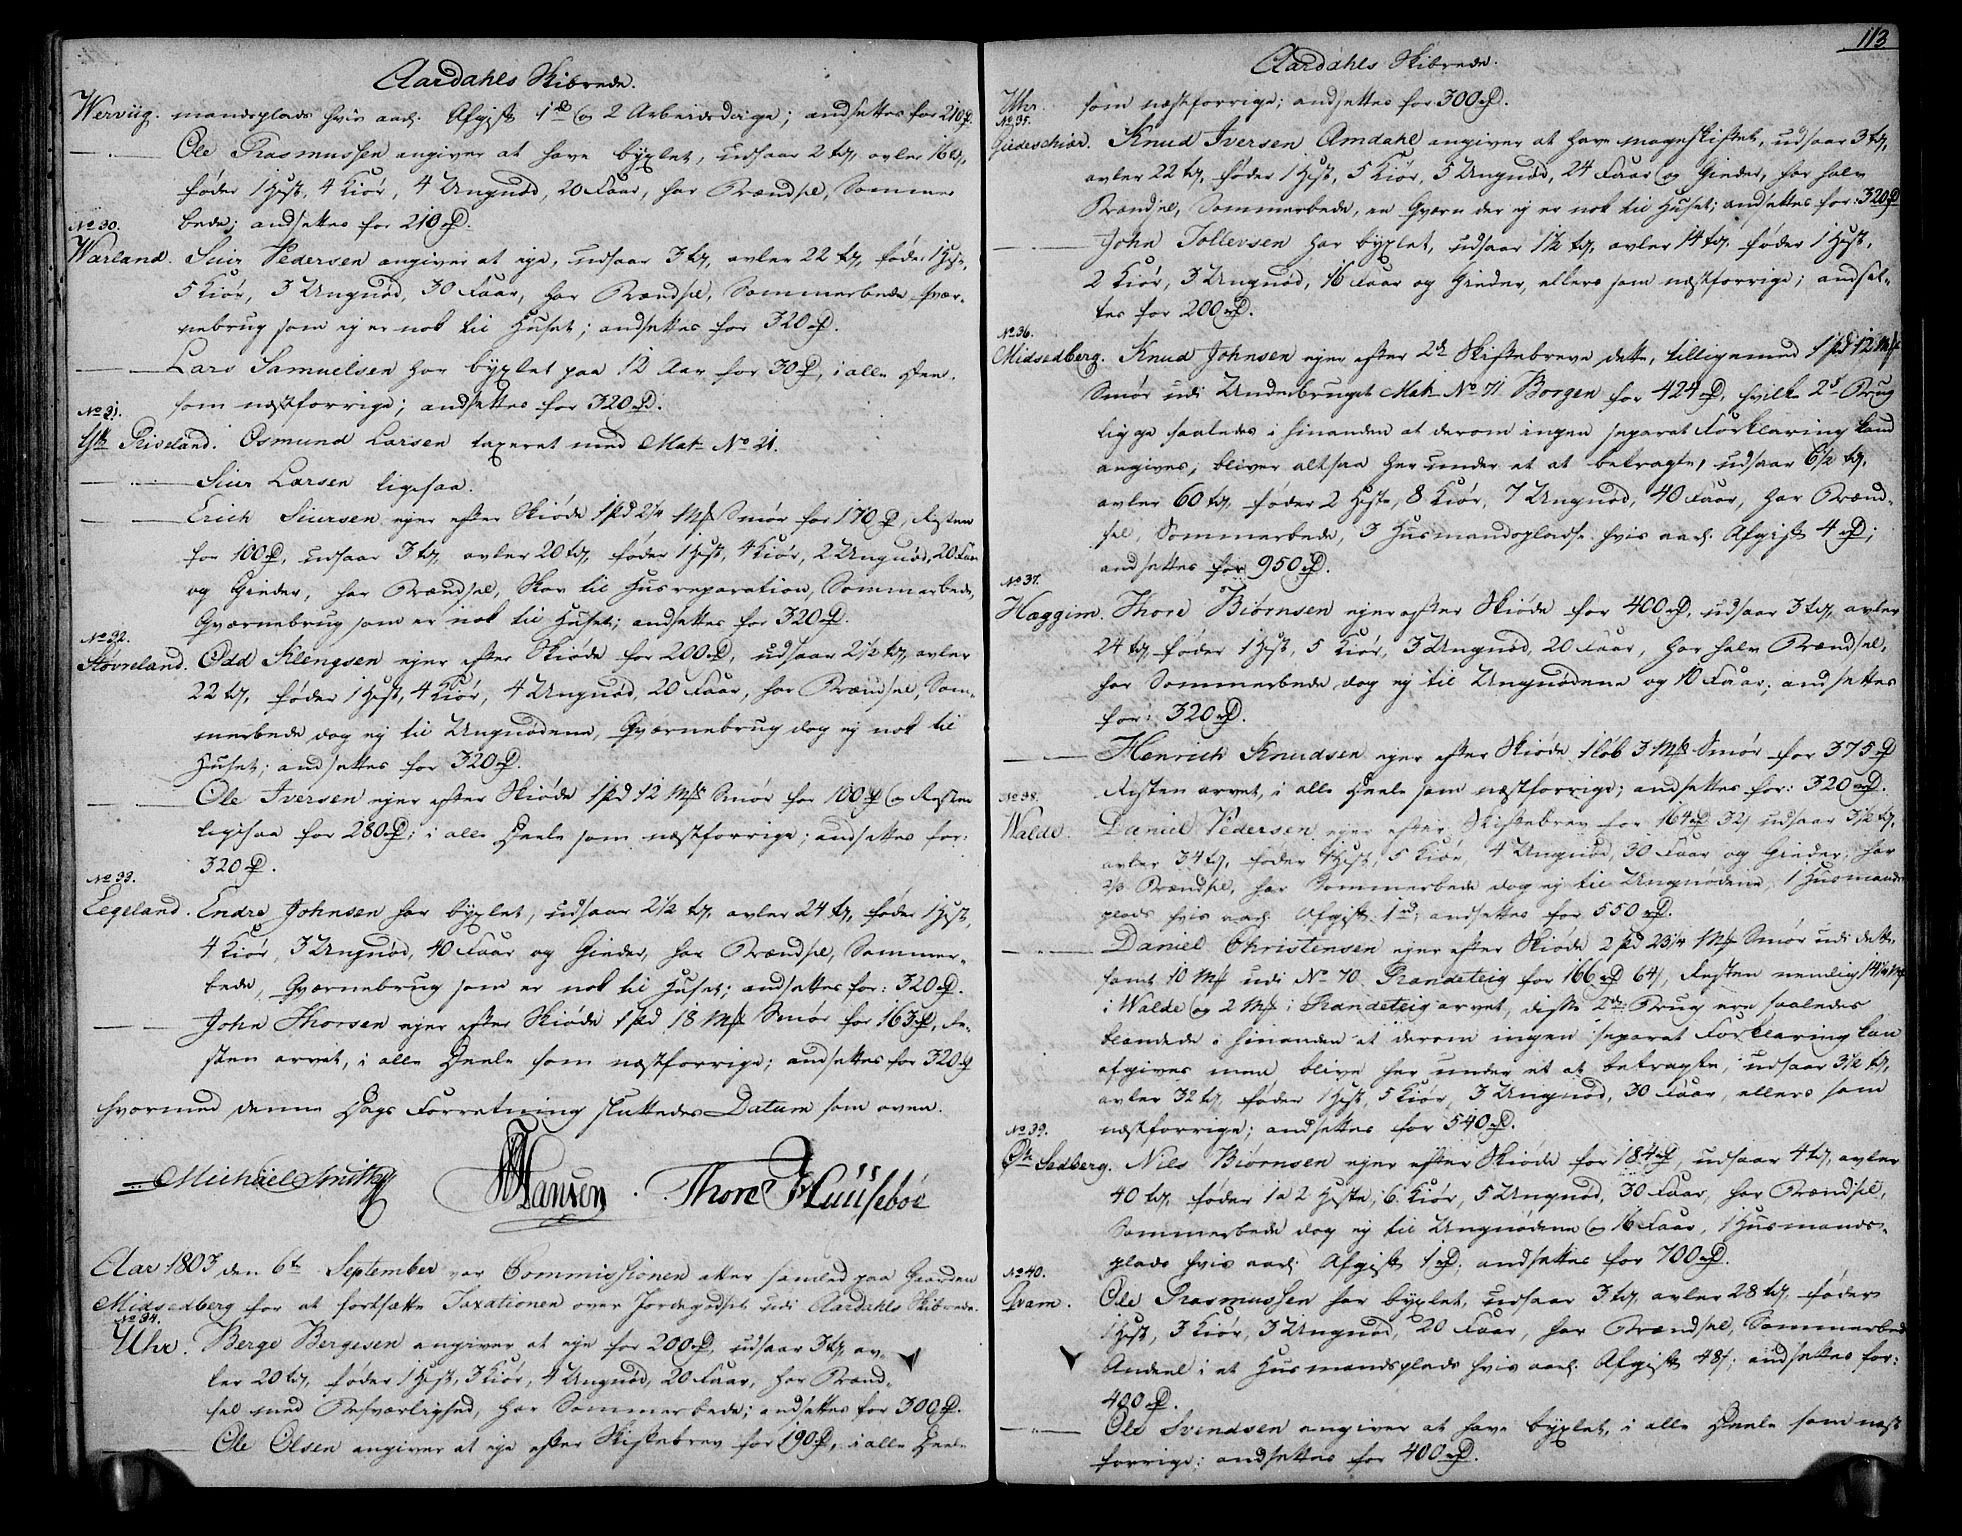 Aardahls Skibrede.
Werviig. mandsplads hvis aarl. Afgift 1 rd og 2 Arbeidsdage; andsettes for 210 rd.
Ole Rasmussen angiver at have byxlet, udsaar 2 tdr, avler 16 tdr,
føder 1 Hest, 4 Kiør, 4 Ungnød, 20 Faar, har Brændsel, Sommer
bede; andsettes for 210 rd.
No 30.
Warland. Siur Pedersen angiver at eje, udsaar 3 tdr, avler 22 tdr, føder 1 Hest,
5 Kiør, 3 Ungnød, 30 Faar, har Brændsel, Sommerbede Qvær-
nebrug som ej er nok til Huset; andsettes for 320 rd.
Lars Samuelsen har byxlet paa 12 Aar for 30 rd, i alle Dee.
som næstforrige; andsettes for 320 rd.
No 31.
Riveland. Osmund Larsen taxeret med Mat. No 21.
Siur Larsen ligesaa.
Erich Siursen ejer efter Skiøde 1 pd 2 1/4 Mk Smør for 170 rd, Resten
for 100 rd, udsaar 3 tdr, avler 20 tdr, føder 1 Hest, 4 Kiør, 2 Ungnød, 20 Faar
og Gieder, har Brændsel, Skov til Husreparation, Sommerbede,
Qværnebrug som er nok til Huset; andsettes for 320 rd.
No 32.
Støvreland. Odd Klengsen ejer efter Skiøde for 200 rd, udsaar 2 1/2 tdr, avler
22 tdr, føder 1 Hest, 4 Kiør, 4 Ungnød, 20 Faar, har Brændsel, Som-
merbede dog ej til Ungnødene, Qværnebrug dog ej nok til
Huset; andsettes for 320 rd.
Ole Iversen ejer efter Skiøde 1 pd 12 Mk Smør for 100 rd og Resten
ligesaa for 280 rd; i alle Deele som næstforrige; andsettes for:
320 rd.
No 33.
Eegeland. Endre Johnsen har byxlet, udsaar 2 1/2 tdr, avler 24 tdr, føder 1 Hest,
4 Kiør, 3 Ungnød, 40 Faar og Gieder, har Brændsel, Sommer-
bede, Qværnebrug som er nok til Huset; andsettes for: 320 rd.
John Thorsen ejer efter Skiøde 1 pd 18 Mk Smør for 163 rd, Re-
sten arvet, i alle Deele som næstforrige; andsettes for 320 rd
hvormed denne Dags Forretning sluttedes Datum som oven.
Michael Smith Hansen. Thore Huusebøe
Aar 1803 den 6te September var Commissionen atter samled paa Gaarden
Midsedberg for at fortsætte Taxationen over Jordegodset udi Aardahls Skibrede.
No 34.
Uhr. Berge Bergesen angiver at eje for 200 rd, udsaar 3 tdr, av-
ler 20 tdr, føder 1 Hest, 3 Kiør, 4 Ungnød, 20 Faar, har Brænd-
sel med Besværlighed, har Sommerbede; andsettes for 300 rd.
Ole Olsen angiver at eje efter Skiftebrev for 190 rd, i alle Deele
113
Aardahls Skibrede.
Uhr. som næstforrige; andsettes for 300 rd.
No 35.
Giedeschiær. Knud Iversen Amdahl angiver at have mageskiftet, udsaar 3 tdr,
avler 22 tdr, føder 1 Hest, 5 Kiør, 3 Ungnød, 24 Faar og Gieder, har halv
Brændsel, Sommerbede, en Qværn der ej er nok til Huset; andsettes for: 320 rd
John Tollevsen har byxlet, udsaar 1 1/2 tdr, avler 14 tdr, føder 1 Hest,
2 Kiør, 3 Ungnød, 16 Faar og Gieder, ellers som næstforrige; andset-
tes for 200 rd.
No 36.
Midsedberg. Knud Johnsen ejer efter 2de Skiftebreve dette, tilligemed 1 pd 12 Mk
Smør udi Underbruget Mat. No 71 Borgen for 424 rd, hvilke 2de Brug
ligge saaledes i hinanden at derom ingen separat Forklaring kand
angives, bliver altsaa her under et at betragte, udsaar 6 1/2 tdr,
avler 60 tdr, føder 2 Heste, 8 Kiør, 7 Ungnød, 40 Faar, har Brænd-
sel, Sommerbede, 3 Husmandspladse hvis aarl. Afgift 4 rd;
andsettes for 950 rd.
No 37.
Haggim. Thore Biørnsen ejer efter Skiøde for 400 rd, udsaar 3 tdr, avler
24 tdr, føder 1 Hest, 5 Kiør, 3 Ungnød, 20 Faar, har halv Brændsel,
har Sommerbede dog ej til Ungnødene og 10 Faar; andsettes
for: 320 rd.
Henrich Knudsen ejer efter Skiøde 1 Løb 3 Mk Smør for 375 rd
Resten arvet, i alle Deele som næstforrige; andsettes for: 320 rd.
No 38.
Walde. Daniel Pedersen ejer efter Skiftebrev for 164 rd 32 s udsaar 3 1/2 tdr,
avler 34 tdr, føder 1 Hest, 5 Kiør, 4 Ungnød, 30 Faar og Gieder, har
2/3 Brændsel, har Sommerbede dog ej til Ungnødene, 1 Husmands
plads hvis aarl. Afgift 1 rd; andsettes for 550 rd.
Daniel Christensen ejer efter Skiøde 2 pd 23 1/4 Mk Smør udi dette,
samt 10 Mk udi No 70. Randeteig for 166 rd 64 s, Resten nemlig 14 1/4 Mk
i Walde og 2 Mk i Randeteig arvet, disse 2de Brug ere saaledes
blandede i hinanden at derom ingen separat Forklaring kan
afgives men blive her under et at betragte; udsaar 3 1/2 tdr,
avler 32 tdr, føder 1 Hest, 5 Kiør, 3 Ungnød, 30 Faar, ellers som
næstforrige; andsettes for 540 rd.
No 39.
Sedberg. Nils Biørnsen ejer efter Skiøde for 184 rd, udsaar 4 tdr, avler
40 tdr, føder 1 a 2 Heste, 6 Kiør, 5 Ungnød, 30 Faar, har Brændsel,
Sommerbede dog ej til Ungnødene og 16 Faar, 1 Husmands-
plads hvis aarl. Afgift 1 rd; andsettes for 700 rd.
No 40.
Qvam. Ole Rasmussen har byxlet, udsaar 3 tdr, avler 28 tdr, føder
1 Hest, 3 Kiør, 3 Ungnød, 20 Faar, har Brændsel, Sommerbede
Andeel i et Husmandsplads hvis aarl. Afgift 48 s; andsettes for:
400 rd.
Ole Svendsen angiver at have byxlet, i alle Deele som næst
forrige; andsettes for 400 rd.